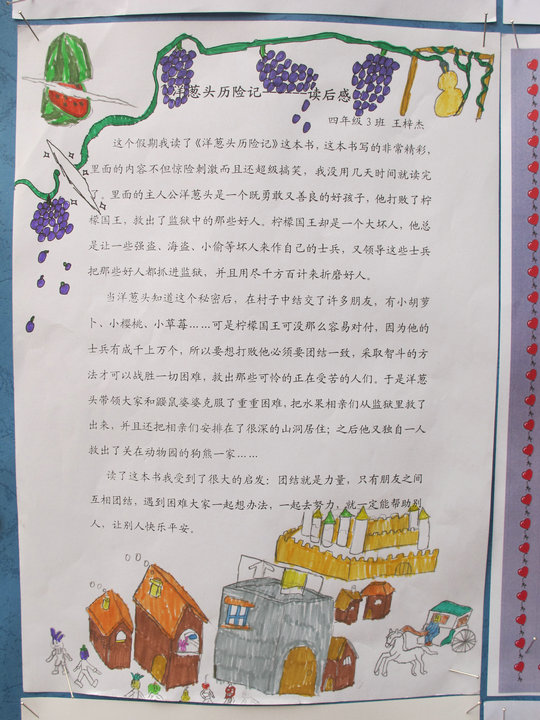 洋葱头历险记———读后感
四年级 3 班 王梓杰
这个假期我读了《洋葱头历险记》这本书，这本书写的非常精彩，
里面的内容不但惊险刺激而且还超级搞笑，我没用几天时间就读完
了。里面的主人公洋葱头是一个既勇敢又善良的好孩子，他打败了柠
檬国王，救出了监狱中的那些好人。柠檬国王却是一个大坏人，他总
是让一些强盗、海盗、小偷等坏人来作自己的士兵，又领导这些士兵
把那些好人都抓进监狱，并且用尽千方百计来折磨好人。
当洋葱头知道这个秘密后，在村子中结交了许多朋友，有小胡萝
卜、小樱桃、小草莓……可是柠檬国王可没那么容易对付，因为他的
士兵有成千上万个，所以要想打败他必须要团结一致，采取智斗的方
法才可以战胜一切困难，救出那些可怜的正在受苦的人们。于是洋葱
头带领大家和鼹鼠婆婆克服了重重困难，把水果相亲们从监狱里救了
出来，并且还把相亲们安排在了很深的山洞居住；之后他又独自一人
救出了关在动物园的狗熊一家……
读了这本书我受到了很大的启发：团结就是力量，只有朋友之间
互相团结，遇到困难大家一起想办法，一起去努力，就一定能帮助别
人，让别人快乐平安。